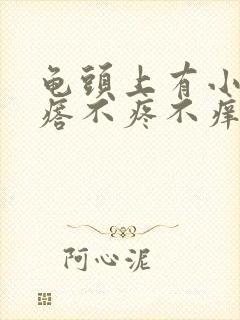 龟頭上有小
痞不疼不痒
阿心泥